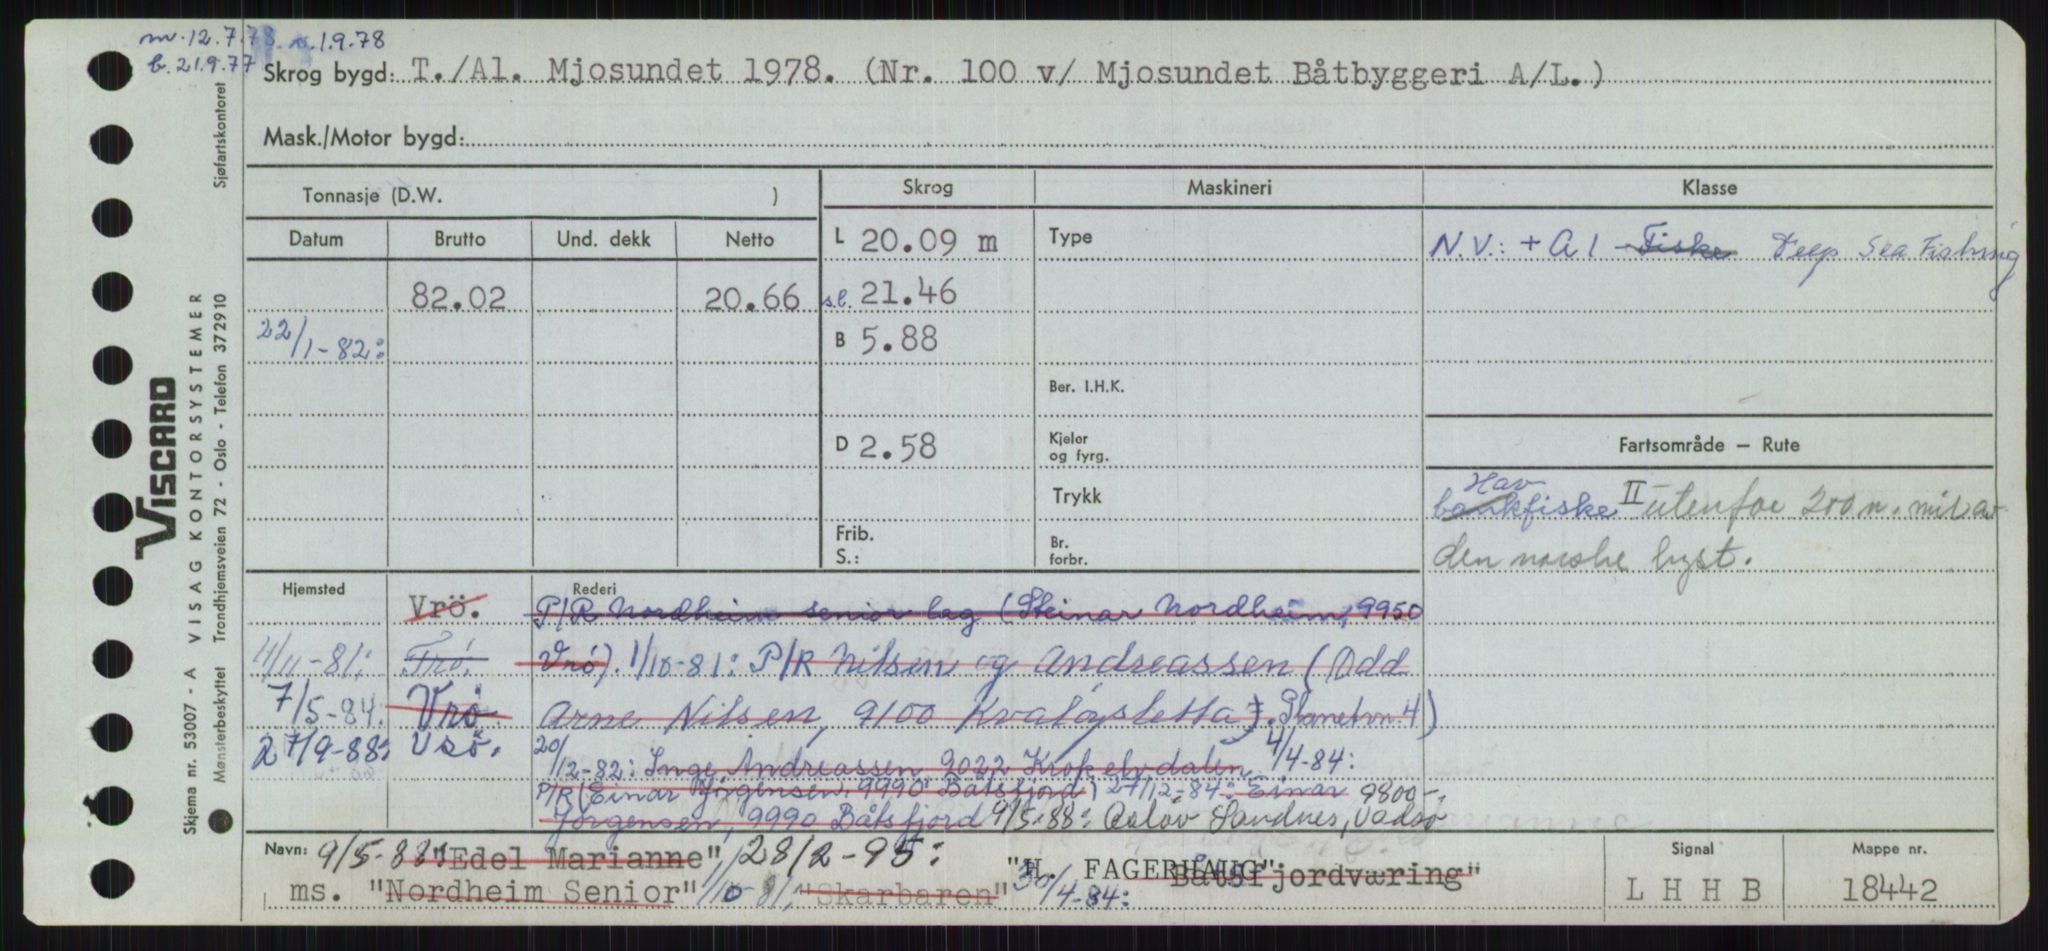 m. 12.7.78 n. 1.9.78
b. 21.9.77
Skrog bygd: T./Al. Mjosundet 1978. (Nr. 100 v/ Mjosundet Båtbyggeri A/L.)
Mask./Motor bygd:
Tonnasje (D.W. )
Skrog
Maskineri
Klasse
Datum
Brutto
Und. dekk
Netto
L 20.09 m
Type
N.V.: + A 1 - Fiske Deep Sea Fishing
82.02
20.66
s.l. 21.46
22/1-82:
B 5.88
Ber. I.H.K.
D 2.58
Kjeler
og fyrg.
Fartsområde — Rute
Trykk
Hav
bankfiske II utenfor 200 n. mil av
den norske kyst.
Frib.
S.:
Br.
forbr.
Hjemsted
Rederi
Vrö.
P/R Nordheim senior lag (Steinar Nordheim, 9950
4/11-81: Trö.
Vrö). 1/10-81: P/R Nilsen og Andreassen (Odd
7/5-84. Vrö
Arne Nilsen, 9100 Kvaløysletta). Planetvn. 4)
27/9-88: Vsö.
20/12-82: Inge Andreassen 9022 Krokelvdalen 4/4-84:
P/R (Einar Jørgensen, 9990 Båtsfjord) 27/12-84: Einar 9800-
Jørgensen, 9990 Båtsfjord 9/5-88: Asløv Sandnes, Vadsø
Navn: 9/5-88: "Edel Marianne", 28/2-95: "H. FAGERHAUG"
ms. "Nordheim Senior" 1/10-81: "Skarbaren" 30/4-84: Båtsfjordværing"
Signal
L H H B
Mappe nr.
18442
VISCARD
VISAG KONTORSYSTEMER
Skjema nr. 53007 - A
Mønsterbeskyttet Trondhjemsveien 72 - Oslo - Telefon 372910
Sjøfartskontoret